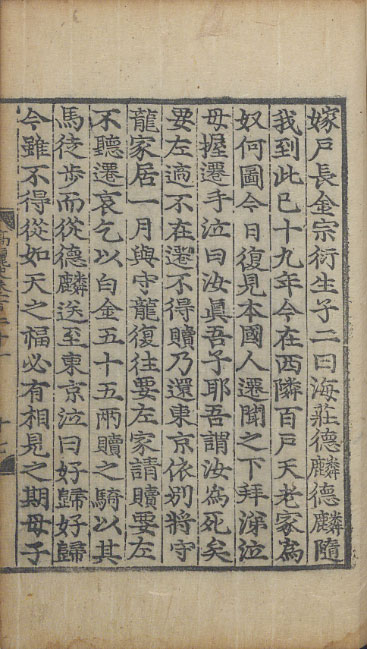 嫁戶長金宗衍生子二曰海莊德麟德麟隨
我到此已十九年今在西隣百戶天老家爲
奴何圖今日復見本國人遷聞之下拜涕泣
母握遷手泣曰汝眞吾子耶吾謂汝爲死矣
要左適不在遷不得贖乃還東京依別將守
龍家居一月與守龍復往要左家請贖要左
不聽遷哀乞以白金五十五兩贖之騎以其
馬徒步而從德麟送至東京泣曰好歸好歸
今雖不得從如天之福必有相見之期母子